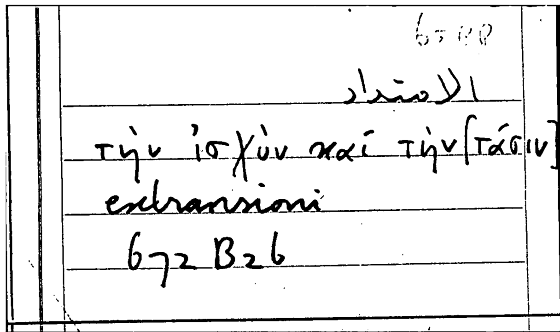 الامتداد
τὴν ἰσχὺν καὶ τὴν [τάσιν]
extransioni
672 B26